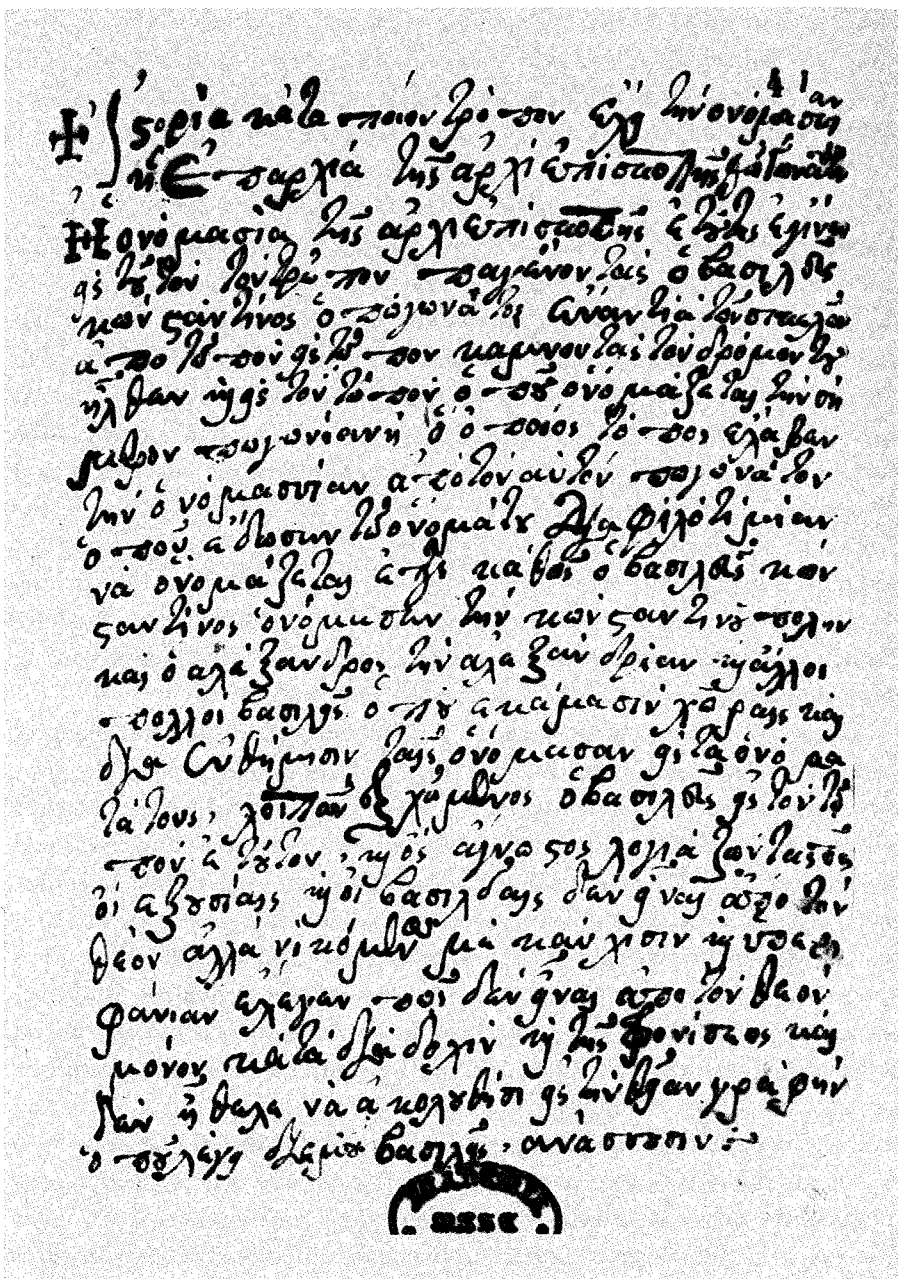 Ἱστορία κάτα ποιον τρόπον ἔχη τὴν ὀνόμασιαν
ἡ Ἐπαρχιά τῆς ἀρχιεπισκοπῆς
Ἡ ὀνόμασία τῆς ἀρχιεπισκοπῆς ἐτούτης ἐγίνη
εἰς τοῦτον τὸν τρόπον παγένοντας ὁ βασιλεὺς
κωνσταντῖνος ὁ πογωνάτος ἐνάντια
ἀπο τόπον εἰς τόπον καμνοντας τὸν δρόμον του
ἦλθεν καὶ εἰς τὸν τόπον ὁποῦ ὀνομάζεται τὴν σή
μερον πωγωνιανή ὁ ὁποίος τόπος ἔλαβεν
τὴν ὀνόμασιαν ἀπὸ τὸν αὐτὸν πογωνάτον
ὁποῦ ἔδωσεν τὸ ὄνομά του διὰ φιλοτιμίαν
νὰ ὀνομάζεται ἔτζι κάθως ὁ βασιλεὺς κων
σταντῖνος ὀνόμασεν τὴν κωνσταντινούπολην
καὶ ὁ αλέξανδρος τὴν αλεξανδρίαν καὶ ἄλλοι
πολλοι βασιλεῖς ὁποῦ ἐκάμασιν χῶραις καὶ
διὰ ἐνθύμησιν ταῖς ὀνόμασαν εἰς τὰ ὀνόμα
τά τους, λοιπὸν δεχόμενος ὁ βασιλεὺς εἰς τὸν τό
πον ἐτοῦτον, καὶ ὁς ἄγνωστος λογιάζωντας πῶς
οἱ ἐξουσίαις καὶ οἱ βασιλείαις δὲν εἶναι ἀπὸ τὸν
θεόν ἀλλὰ μὲ καύχισιν καὶ υπερη
φάνιαν ἔλεγεν πῶς δὲν εἶναι ἀπο τὸν θεόν
μόνον κατὰ διαδοχὴν καὶ τῆς φρονίσεως καὶ
δὲν ἤθελε νὰ ἀκολουθήσι εἰς τὴν θείαν γραφὴν
ὁποῦ λέγη δι ἐμοῦ βασιλεῖς